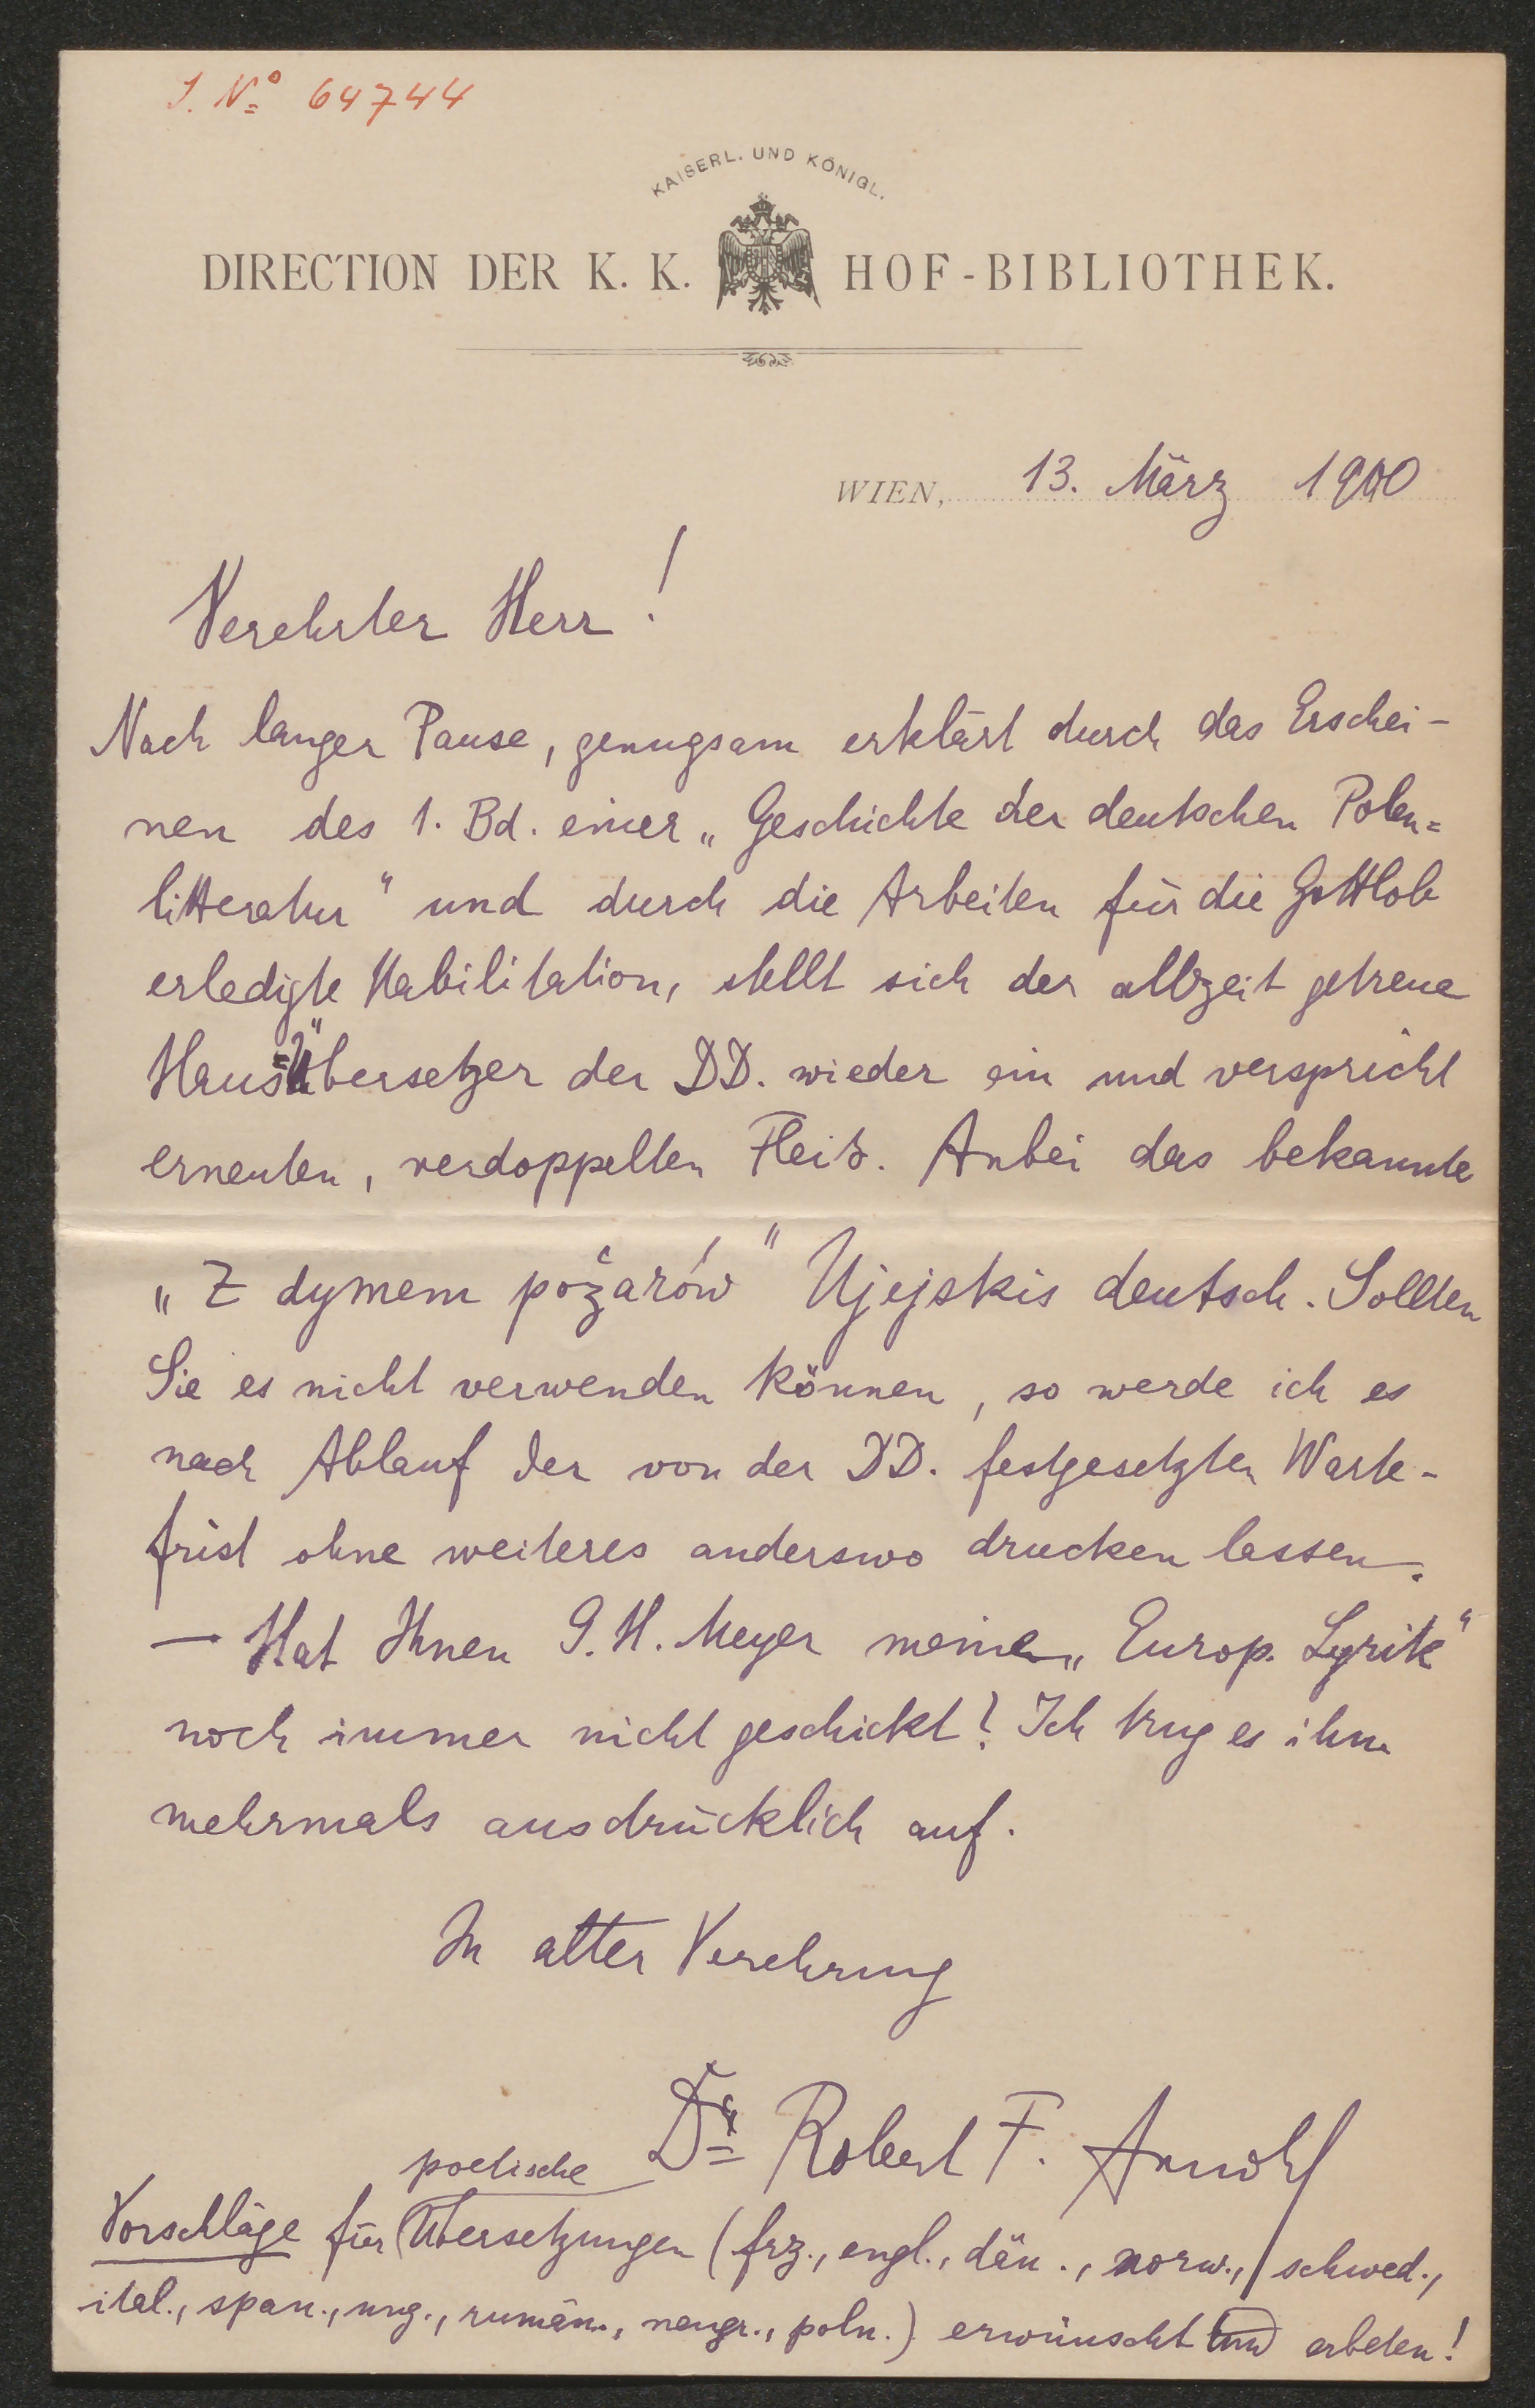 J. No 64744
KAISERL. UND KÖNIGL.
DIRECTION DER K. K. HOF-BIBLIOTHEK.
WIEN, 13. März 1900
Verehrter Herr!
Nach langer Pause, genugsam erklärt durch das Erschei-
nen des 1. Bd. einer „Geschichte der deutschen Polen=
litteratur" und durch die Arbeiten für die Gottlob
erledigte Habilitation, stellt sich der allzeit getreue
Haus=Übersetzer der DD. wieder ein und verspricht
erneuten, verdoppelten Fleiß. Anbei das bekannte
„Z dymem pożarów" Ujejskis deutsch. Sollten
Sie es nicht verwenden können, so werde ich es
nach Ablauf der von der DD. festgesetzten Warte-
frist ohne weiteres anderswo drucken lassen.
— Hat Ihnen G. H. Meyer meine „Europ. Lyrik"
noch immer nicht geschickt? Ich trug es ihm
mehrmals ausdrücklich auf.
In alter Verehrung
Dr Robert F. Arnold
poetische
Vorschläge für Übersetzungen (frz., engl., dän., norw., schwed.,
ital., span., ung., rumän., neugr., poln.) erwünscht und erbeten!